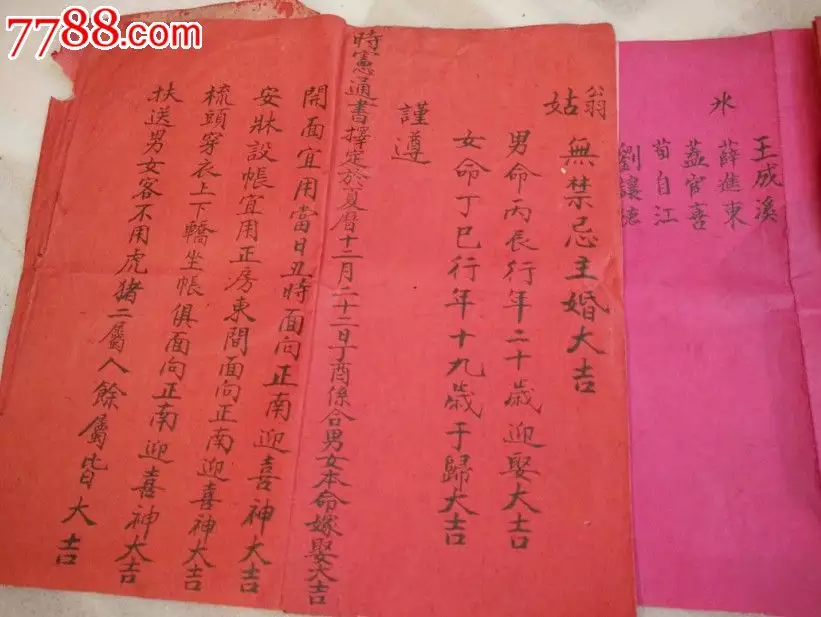 7788.com
氷
王成溪
薛進東
孟官喜
荀自江
劉讓德
翁姑無禁忌主婚大吉
男命丙辰行年二十歲迎娶大吉
女命丁巳行年十九歲于歸大吉
謹遵
時憲通書擇定於夏曆十二月二十二日丁酉係合男女本命嫁娶大吉
開面宜用當日丑時面向正南迎喜神大吉
安牀設帳宜用正房東間面向正南迎喜神大吉
梳頭穿衣上下轎坐帳俱面向正南迎喜神大吉
扶送男女客不用虎猪二屬人餘屬皆大吉